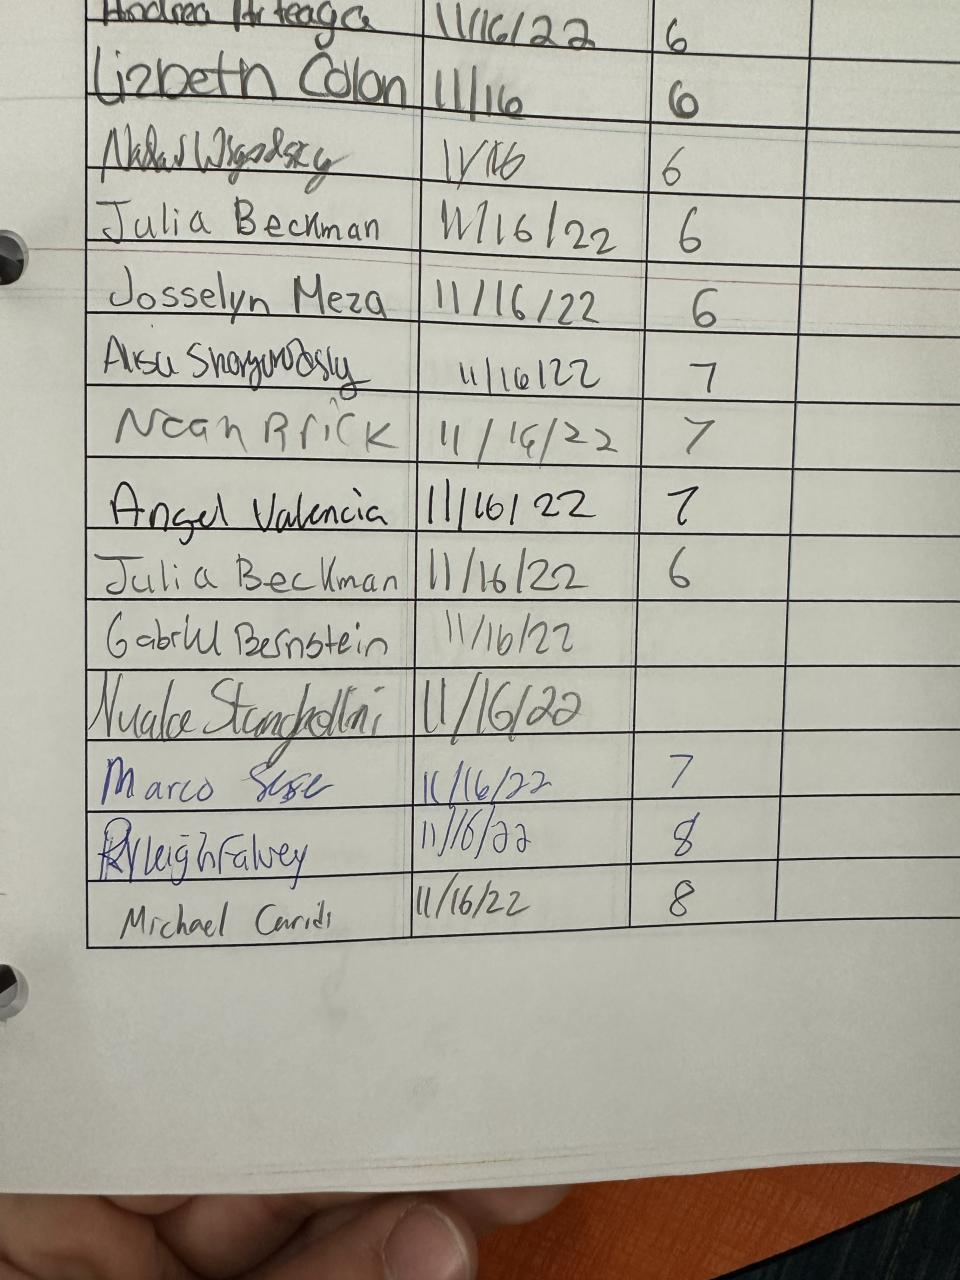 Andrea Arteaga 11/16/22 6
Lizbeth Colon 11/16 6
11/16 6
Julia Beckman 11/16/22 6
Josselyn Meza 11/16/22 6
11/16/22 7
Noah Brick 11/16/22 7
Angel Valencia 11/16/22 7
Julia Beckman 11/16/22 6
Gabriel Bernstein 11/16/22
11/16/22
Marco 11/16/22 7
Ryleigh Falvey 11/16/22 8
Michael Caridi 11/16/22 8